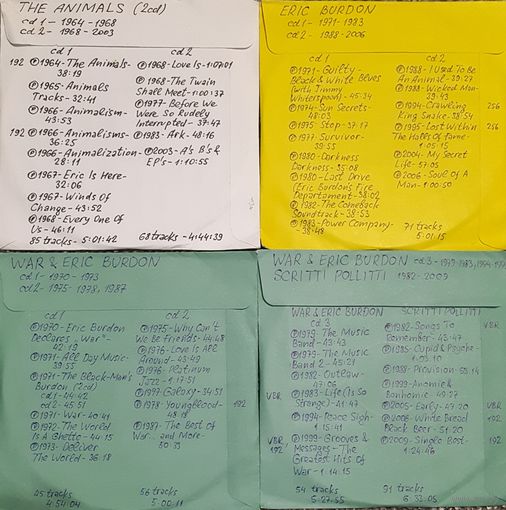 THE ANIMALS (2cd)
cd 1 - 1964 - 1968
cd 2 - 1968 - 2003
cd 1
192 ℗1964-The Animals-
38:19
℗1965-Animals
Tracks-32:41
℗1966-Animalism-
43:53
192 ℗1966-Animalisms-
36:25
℗1966-Animalization-
28:11
℗1967-Eric Is Here-
32:06
℗1967-Winds Of
Change-43:52
℗1968-Every One Of
Us-46:11
85 tracks - 5:01:42
cd 2
℗1968-Love Is-1:07:01
℗1968-The Twain
Shall Meet-1:00:37
℗1977-Before We
Were So Rudely
Interrupted-37:47
℗1983-Ark-48:16
℗2003-A's B's &
EP's-1:10:55
68 tracks - 4:44:39
ERIC BURDON
cd 1 - 1971-1983
cd 2 - 1988-2006
cd 1
℗1971-Guilty-
Black & White Blues
(with Jimmy
Witherspoon)-45:34
℗1974-Sun Secrets-
48:03
℗1975-Stop-37:17
℗1977-Survivor-
39:55
℗1980-Darkness
Darkness-35:08
℗1980-Last Drive
(Eric Burdon's Fire
Departament-38:02
℗1982-The Comeback
Soundtrack-38:53
℗1983-Power Company-
38:48
cd 2
℗1988-I Used To Be
An Animal-39:27
℗1988-Wicked Man-
℗1994-Crawling 256
King Snake-58:54
℗1995-Lost Within 256
The Halls Of Fame-
1:05:15
℗2004-My Secret
Life-57:05
℗2006-Soul Of A
Man-1:00:50
71 tracks
5:01:15
WAR & ERIC BURDON
cd 1 - 1970 - 1973
cd 2 - 1975 - 1978, 1987
cd 1
℗1970-Eric Burdon
Declares „War"-
42:19
℗1971-All Day Music-
39:55
℗1971-The Black-Man's
Burdon (2cd)
cd1-44:42
cd 2-45:51
℗1971-War-40:41
℗1972-The World
Is A Ghetto-44:15
℗1973-Deliver
The World-36:18
45 tracks
4:54:04
cd 2
℗1975-Why Can't
We Be Friends-44:48
℗1976-Love Is All
Around-43:49
℗1976-Platinum
Jazz-1:17:51
℗1977-Galaxy-34:51
℗1978-Youngblood- 192
48:19
℗1987-The Best Of
War... and More-
50:33
56 tracks
5:00:11
WAR & ERIC BURDON cd 3 - 1979-1983, 1994
SCRITTI POLLITTI 1982-2009
WAR & ERIC BURDON
cd 3
℗1979-The Music
Band-43:43
℗1979-The Music
Band 2-45:21
℗1982-Outlaw-
47:06
VBR ℗1983-Life (Is So
Strange)-41:47
℗1994-Peace Sigh-
1:15:41
VBR ℗1999-Grooves &
192 Messages-The
Greatest Hits Of
War-1:14:15
54 tracks
5:27:55
SCRITTI POLLITTI
℗1982-Songs To VBR
Remember-43:47
℗1985-Cupid & Psyche-
℗1988-Provision-58:14
℗1999-Anomie &
Bonhomie-49:27
℗2005-Early-47:20 VBR
℗2006-White Bread 192
Black Beer-51:20
℗2009-Single Best- 192
1:24:46
91 tracks
6:33:05